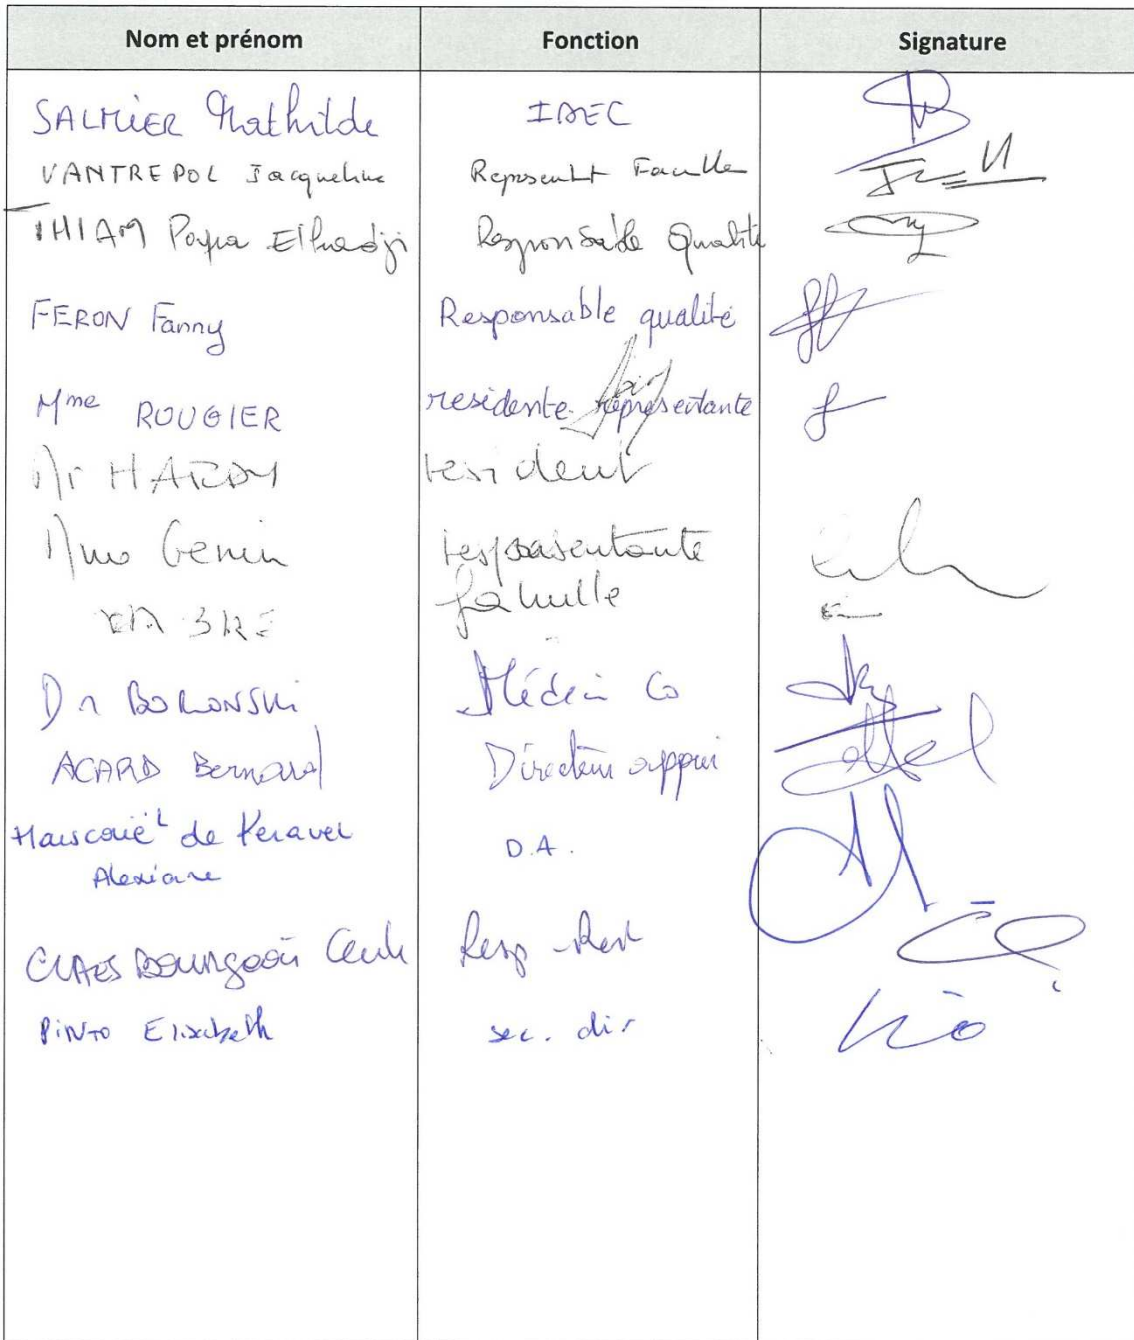 Nom et prénom Fonction Signature
SALMIER Mathilde IDEC
VANTREPOL Jacqueline Represent Famille
THIAM Papa Elhadji Responsable Qualité
FERON Fanny Responsable qualité
Mme ROUGIER residente représentante
Mr HARDY resident
Mme Genin
famille
Dr BORONSKI Médecin Co
ACARD Bernard Directeur appui
de Keravel D.A.
Alexiane
CLAES Bourgeois Resp Rest
PINTO Elisabeth sec. dir